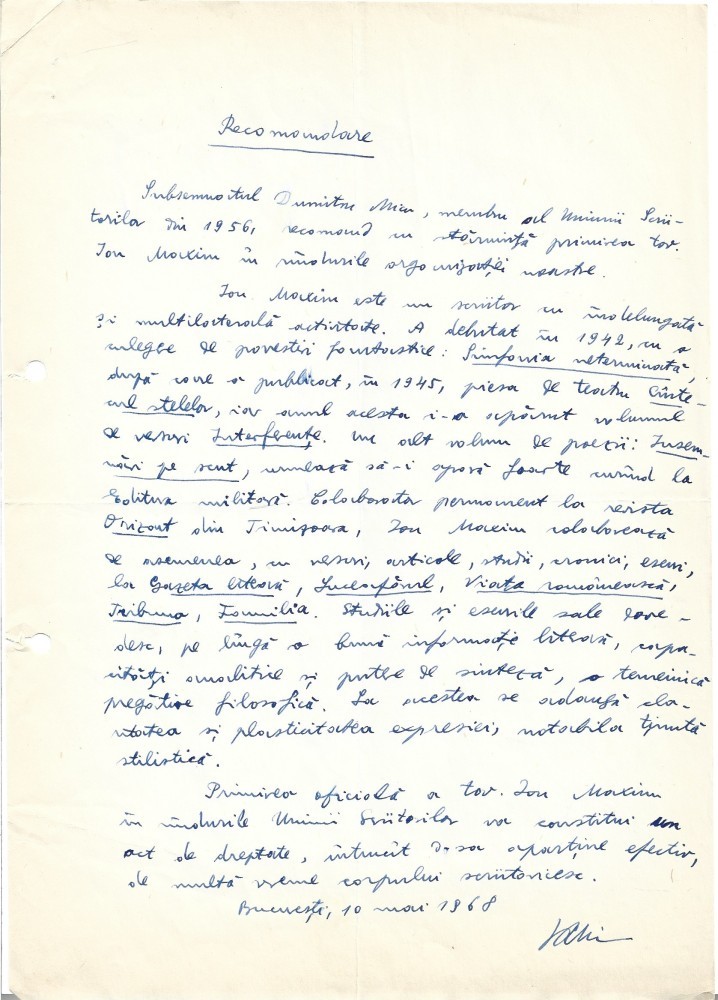 Recomandare
Subsemnatul Dumitru Micu, membru al Uniunii Scrii-
torilor din 1956, recomand cu stăruință primirea tov.
Ion Maxim în rîndurile organizației noastre.
Ion Maxim este un scriitor cu îndelungată
și multilaterală activitate. A debutat în 1942, cu o
culegere de povestiri fantastice: Simfonia neterminată,
după care a publicat, în 1945, piesa de teatru Cînte-
cul stelelor, iar anul acesta i-a apărut volumul
de versuri Interferențe. Un alt volum de poezii: Însem-
nări pe scut, urmează să-i apară foarte curînd la
Editura militară. Colaborator permanent la revista
Orizont din Timișoara, Ion Maxim colaborează
de asemenea, cu versuri, articole, studii, cronici, eseuri,
la Gazeta literară, Luceafărul, Viața românească,
Tribuna, Familia. Studiile și eseurile sale dove-
desc, pe lîngă o bună informație literară, capa-
cități analitice și putere de sinteză, o temeinică
pregătire filosofică. La acestea se adaugă cla-
ritatea și plasticitatea expresiei, notabila ținută
stilistică.
Primirea oficială a tov. Ion Maxim
în rîndurile Uniunii Scriitorilor va constitui un
act de dreptate, întrucît d-sa aparține efectiv,
de multă vreme corpului scriitoricesc.
București, 10 mai 1968